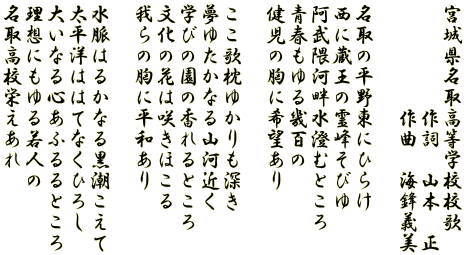 宮城県名取高等学校校歌
作詞　山本　正
作曲　海鋒義美
名取の平野東にひらけ
西に蔵王の霊峰そびゆ
阿武隈河畔水澄むところ
青春もゆる幾百の
健児の胸に希望あり
ここ歌枕ゆかりも深き
夢ゆたかなる山河近く
学びの園の香れるところ
文化の花は咲きほこる
我らの胸に平和あり
水脈はるかなる黒潮こえて
太平洋ははてなくひろし
大いなる心あふるるところ
理想にもゆる若人の
名取高校栄えあれ